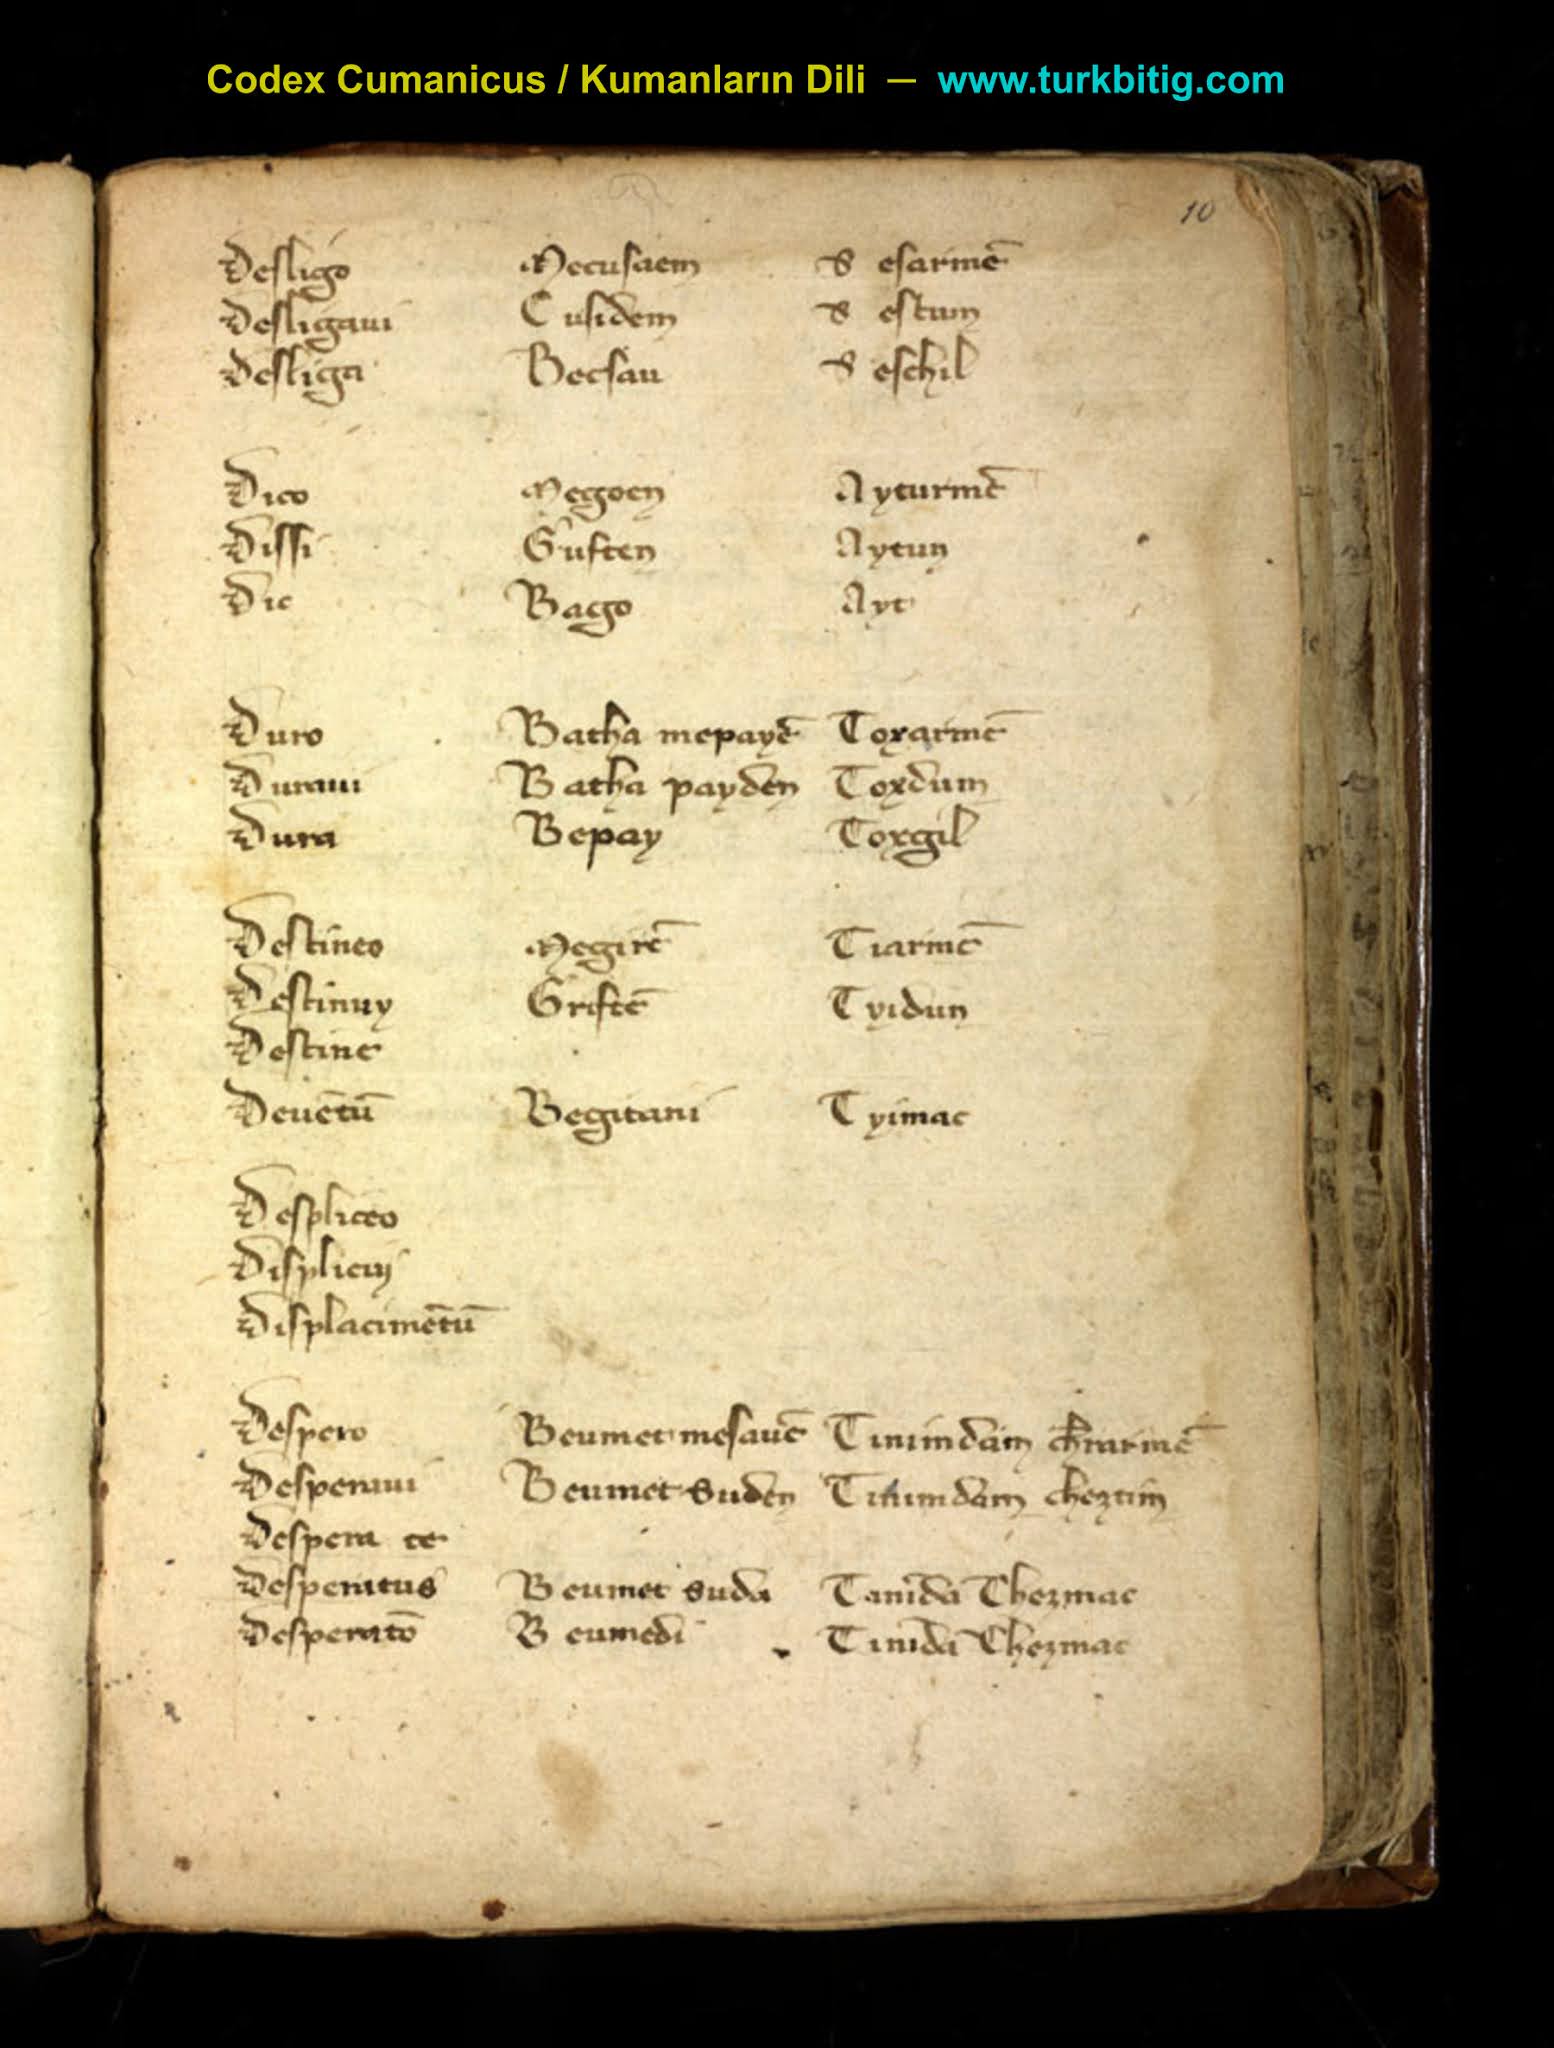 Codex Cumanicus / Kumanların Dili — www.turkbitig.com
10
Desligo Mecusaem S esarmē
Desligaui Cusidem S estum
Desliga Becsau S eschil
Dico Megoen Ayturmē
Dissi Guften Aytun
Dic Bago Ayt
Duro Batha mepayē Toxarmē
Duraui Batha payden Toxdum
Dura Bepay Toxgil
Destineo Megirē Tiarmē
Destinuy Griftē Tyidun
Destine
Deuētū Begitani Tyimac
Despliceo
Displicuj
Displacimētū
Despero Beumet mesauē Tinimdam
Desperaui Beumet suden Tinimdam cheztim
Despera te
Desperatus Beumet suda Tanīda Chezmac
Desperatō Beumedi Tinīdā Chezmac